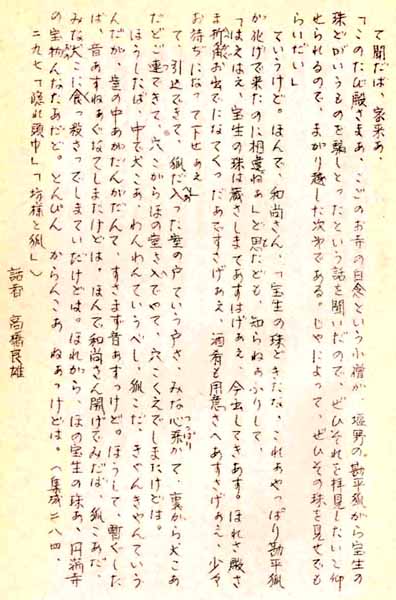 て聞だば、家来あ、
「このたび殿さまあ、ここのお寺の白念という小僧が、塩野の勘平狐がら宝生の
珠どがいうものを騙しとったという話を聞いだので、ぜひそれを拝見したいと仰
せられるので、まがり越した次第である。じゃによって、ぜひその珠を見せでも
らいだい」
ていうけど。ほんで、和尚さん、「宝生の珠どきたな、これあやっぱり勘平狐
が化げで来たのに相違ねぁ」ど思だども、知らねぁふりして、
「はえはえ、宝生の珠は蔵さしまてあすはげぁえ、今出してきあす。ほれさ殿さ
ま折敵お出でになてくっだあですさげぁえ、酒肴も用意さへあすさげぁえ、少々
お待ぢになって下せぁえ」
て、引込できて、狐だ入った堂の戸ていう戸さ、みな心張かて、裏から犬こあ
だどご連できて、穴こがらほの堂さ入でやて、穴こくえでしまたけどは。
ほうしたば、中で犬こあ、わんわんていうべし、狐こだ、きゃんきゃんていう
んだが、堂の中あがだんがだんて、すさまず音あすっけど。ほうして、暫ぐした
ば、音あすねぁぐなてしまたけどは。ほんで和尚さん開げでみだば、狐こあだ、
みな犬こに食っ殺さってしまていだけどは。ほれがら、ほの宝生の珠あ、円満寺
の宝物んなたあだど。とんぴん からんこあ ねぁっけどは。（集成二八四、
二九七「隠れ頭巾」「坊様と狐」）
話者 高橋良雄